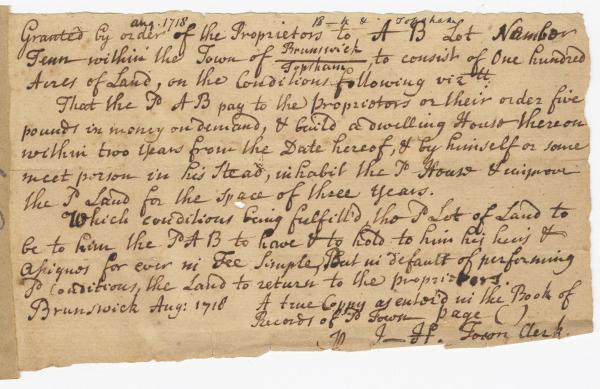 Aug. 1718 18 - 4 & Topsham
Granted by order of the Proprietors to A B Lot Number
Tenn within the Town of Brunswick
Topsham, to consist of One hundred
Acres of Land, on the Conditions following viz tt
That the sd A B pay to the Proprietors or their order five
pounds in money on demand, & build a dwelling House thereon
within two years from the Date hereof, & by himself or some
meet person in his Stead, inhabit the sd House & improve
the sd Land for the space of three years.
Which conditions being fulfill'd, the sd Lot of Land to
be to him the sd A B to have & to hold to him his heirs &
assignes for ever in Fee Simple, But in default of performing
sd Conditions, the Land to return to the proprietors.
Brunswick Aug: 1718 A true Coppy as enter'd in the Book of
Records of sd Town page ( )
J - H. Town Clerk.